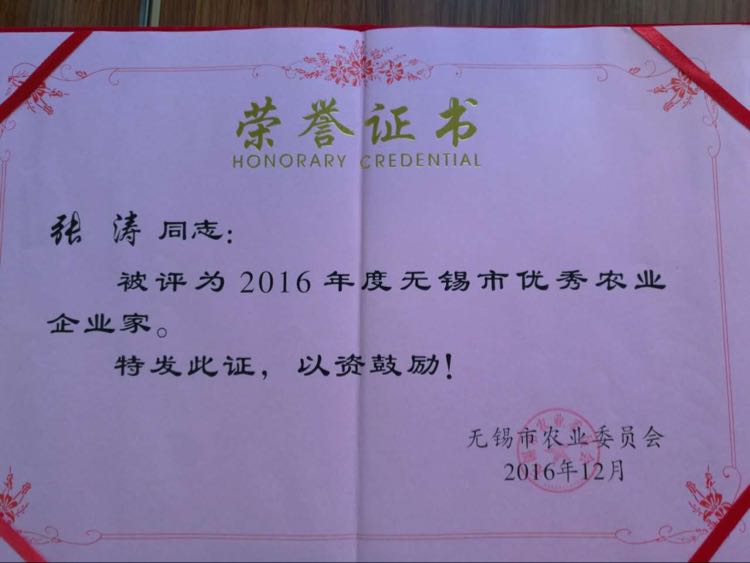 荣誉证书
HONORARY CREDENTIAL
张 涛 同志：
被评为2016年度无锡市优秀农业
企业家。
特发此证，以资鼓励！
无锡市农业委员会
2016年12月